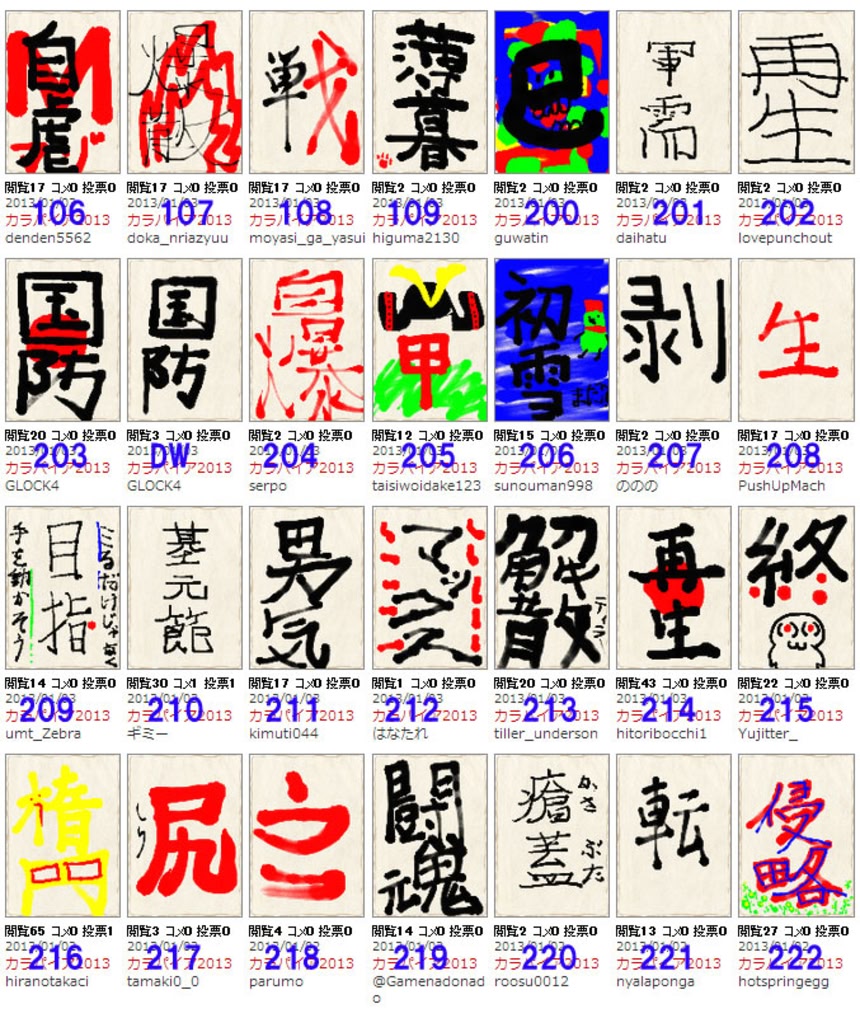 自虐
爆誠
戦
薄暮
色
軍需
再生
閲覧17 コメ0 投票0
2013/01/03
カラパイア2013
106
denden5562
閲覧17 コメ0 投票0
2013/01/03
カラパイア2013
107
doka_nriazyuu
閲覧17 コメ0 投票0
2013/01/03
カラパイア2013
108
moyasi_ga_yasui
閲覧2 コメ0 投票0
2013/01/03
カラパイア2013
109
higuma2130
閲覧2 コメ0 投票0
2013/01/03
カラパイア2013
200
guwatin
閲覧2 コメ0 投票0
2013/01/03
カラパイア2013
201
daihatu
閲覧2 コメ0 投票0
2013/01/03
カラパイア2013
202
lovepunchout
国防
国防
自爆
甲
初雪
まだ
剥
生
閲覧20 コメ0 投票0
2013/01/03
カラパイア2013
203
GLOCK4
閲覧3 コメ0 投票0
2013/01/03
カラパイア2013
DW
GLOCK4
閲覧2 コメ0 投票0
2013/01/03
カラパイア2013
204
serpo
閲覧12 コメ0 投票0
2013/01/03
カラパイア2013
205
taisiwoidake123
閲覧15 コメ0 投票0
2013/01/03
カラパイア2013
206
sunouman998
閲覧2 コメ0 投票0
2013/01/03
カラパイア2013
207
ののの
閲覧17 コメ0 投票0
2013/01/03
カラパイア2013
208
PushUpMach
ミるだけじゃなく
目指
手を動かそう
基元節
男気
マックス
解散
ティラー
再生
終
閲覧14 コメ0 投票0
2013/01/03
カラパイア2013
209
umt_Zebra
閲覧30 コメ1 投票1
2013/01/03
カラパイア2013
210
ギミー
閲覧17 コメ0 投票0
2013/01/03
カラパイア2013
211
kimuti044
閲覧1 コメ0 投票0
2013/01/03
カラパイア2013
212
はなたれ
閲覧20 コメ0 投票0
2013/01/03
カラパイア2013
213
tiller_underson
閲覧43 コメ0 投票0
2013/01/03
カラパイア2013
214
hitoribocchi1
閲覧22 コメ0 投票0
2013/01/03
カラパイア2013
215
Yujitter_
楕円
尻
しり
闘魂
元
瘡蓋
かさ
ぶた
転
侵略
閲覧65 コメ0 投票1
2013/01/02
カラパイア2013
216
hiranotakaci
閲覧3 コメ0 投票0
2013/01/02
カラパイア2013
217
tamaki0_0
閲覧4 コメ0 投票0
2013/01/02
カラパイア2013
218
parumo
閲覧14 コメ0 投票0
2013/01/02
カラパイア2013
219
@Gamenadonad
o
閲覧2 コメ0 投票0
2013/01/02
カラパイア2013
220
roosu0012
閲覧13 コメ0 投票0
2013/01/02
カラパイア2013
221
nyalaponga
閲覧27 コメ0 投票0
2013/01/02
カラパイア2013
222
hotspringegg